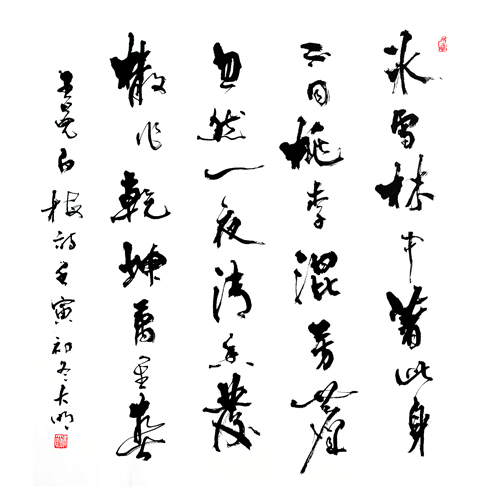 冰雪林中著此身
不同桃李混芳塵
忽然一夜清香發
散作乾坤萬里春
王冕白梅詩壬寅初冬大明